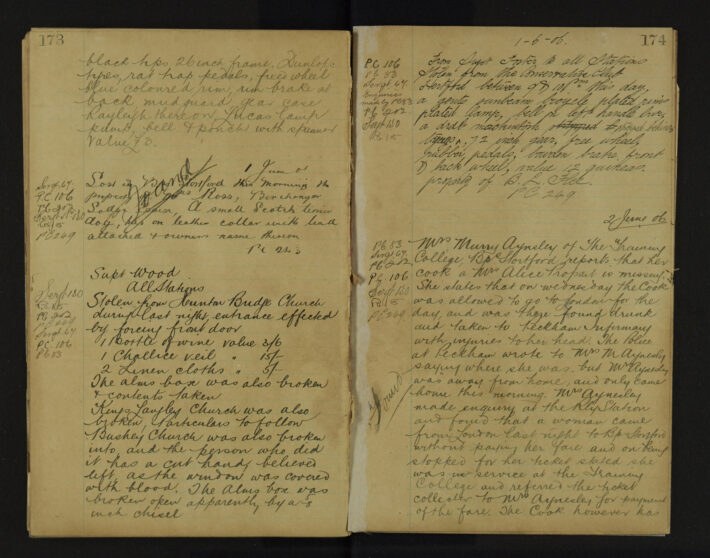 173
black hps, 26 inch frame, Dunlop
tyres, rat trap pedals, free wheel
blue coloured rim, rim brake at
back mudguard gear case
Rayleigh thereon, Lucas lamp
pump, bell & pouch with spanner
Value £3.
1 June 06
Sergt 67
PC 106
PC 249
Lost in Bp Stortford this morning the
property of Ross, Birchanger
A small Scotch terrier
dog, has on leather collar with lead
attached & owners name thereon
Supt Wood
All Stations
Sergt 130
PC 15
PC 202
PC 249
Sergt 67
PC 106
PC 83
Stolen from Bridge Church
during last night, entrance effected
by forcing front door
1 bottle of wine value 3/6
1 Challice veil " 15/-
2 Linen cloths " 5/-
The alms box was also broken
& contents taken
Kings Langley Church was also
broken, particulars to follow
Bushey Church was also broken
into, and the person who did
it has a cut hand, believed
left, as the window was covered
with blood. The Alms box was
broken open apparently by a
inch chisel
174
1-6-06.
PC 106
PC 83
Sergt 67
PC 202
Sergt 130
PC 15
From Supt Foster to all Stations
Stolen from the Conservative Club
Hertford between this day,
a gents sunbeam bicycle plated rims
plated lamp, bell on left handle bar,
a drab mackintosh
72 inch gear, free wheel,
rubber pedals, bowden brake, front
& back wheel, value 12 guineas
property of
PC 249
2 June 06
PC 83
Sergt 67
PC 202
PC 106
Sergt 130
PC 15
PC 249
Mrs Murry Aynsley of The Training
College Bp Stortford reports that her
cook a Mrs Alice is missing.
She states that on wednesday the Cook
was allowed to go to London for the
day, and was there found drunk
and taken to Peckham Infirmary
with injuries to her head. The Police
at Peckham wrote to Mrs M Aynesley
saying where she was, but Mrs Aynesley
was away from home, and only came
home this morning. Mrs Aynesley
made enquiry at the Rly Station
and found that a woman came
from London last night to Bp Stortford
without paying her fare and on being
stopped for her ticket stated she
was in service at the Training
College and referred the ticket
collector to Mrs Aynesley for payment
of the fare. The Cook however has
Found